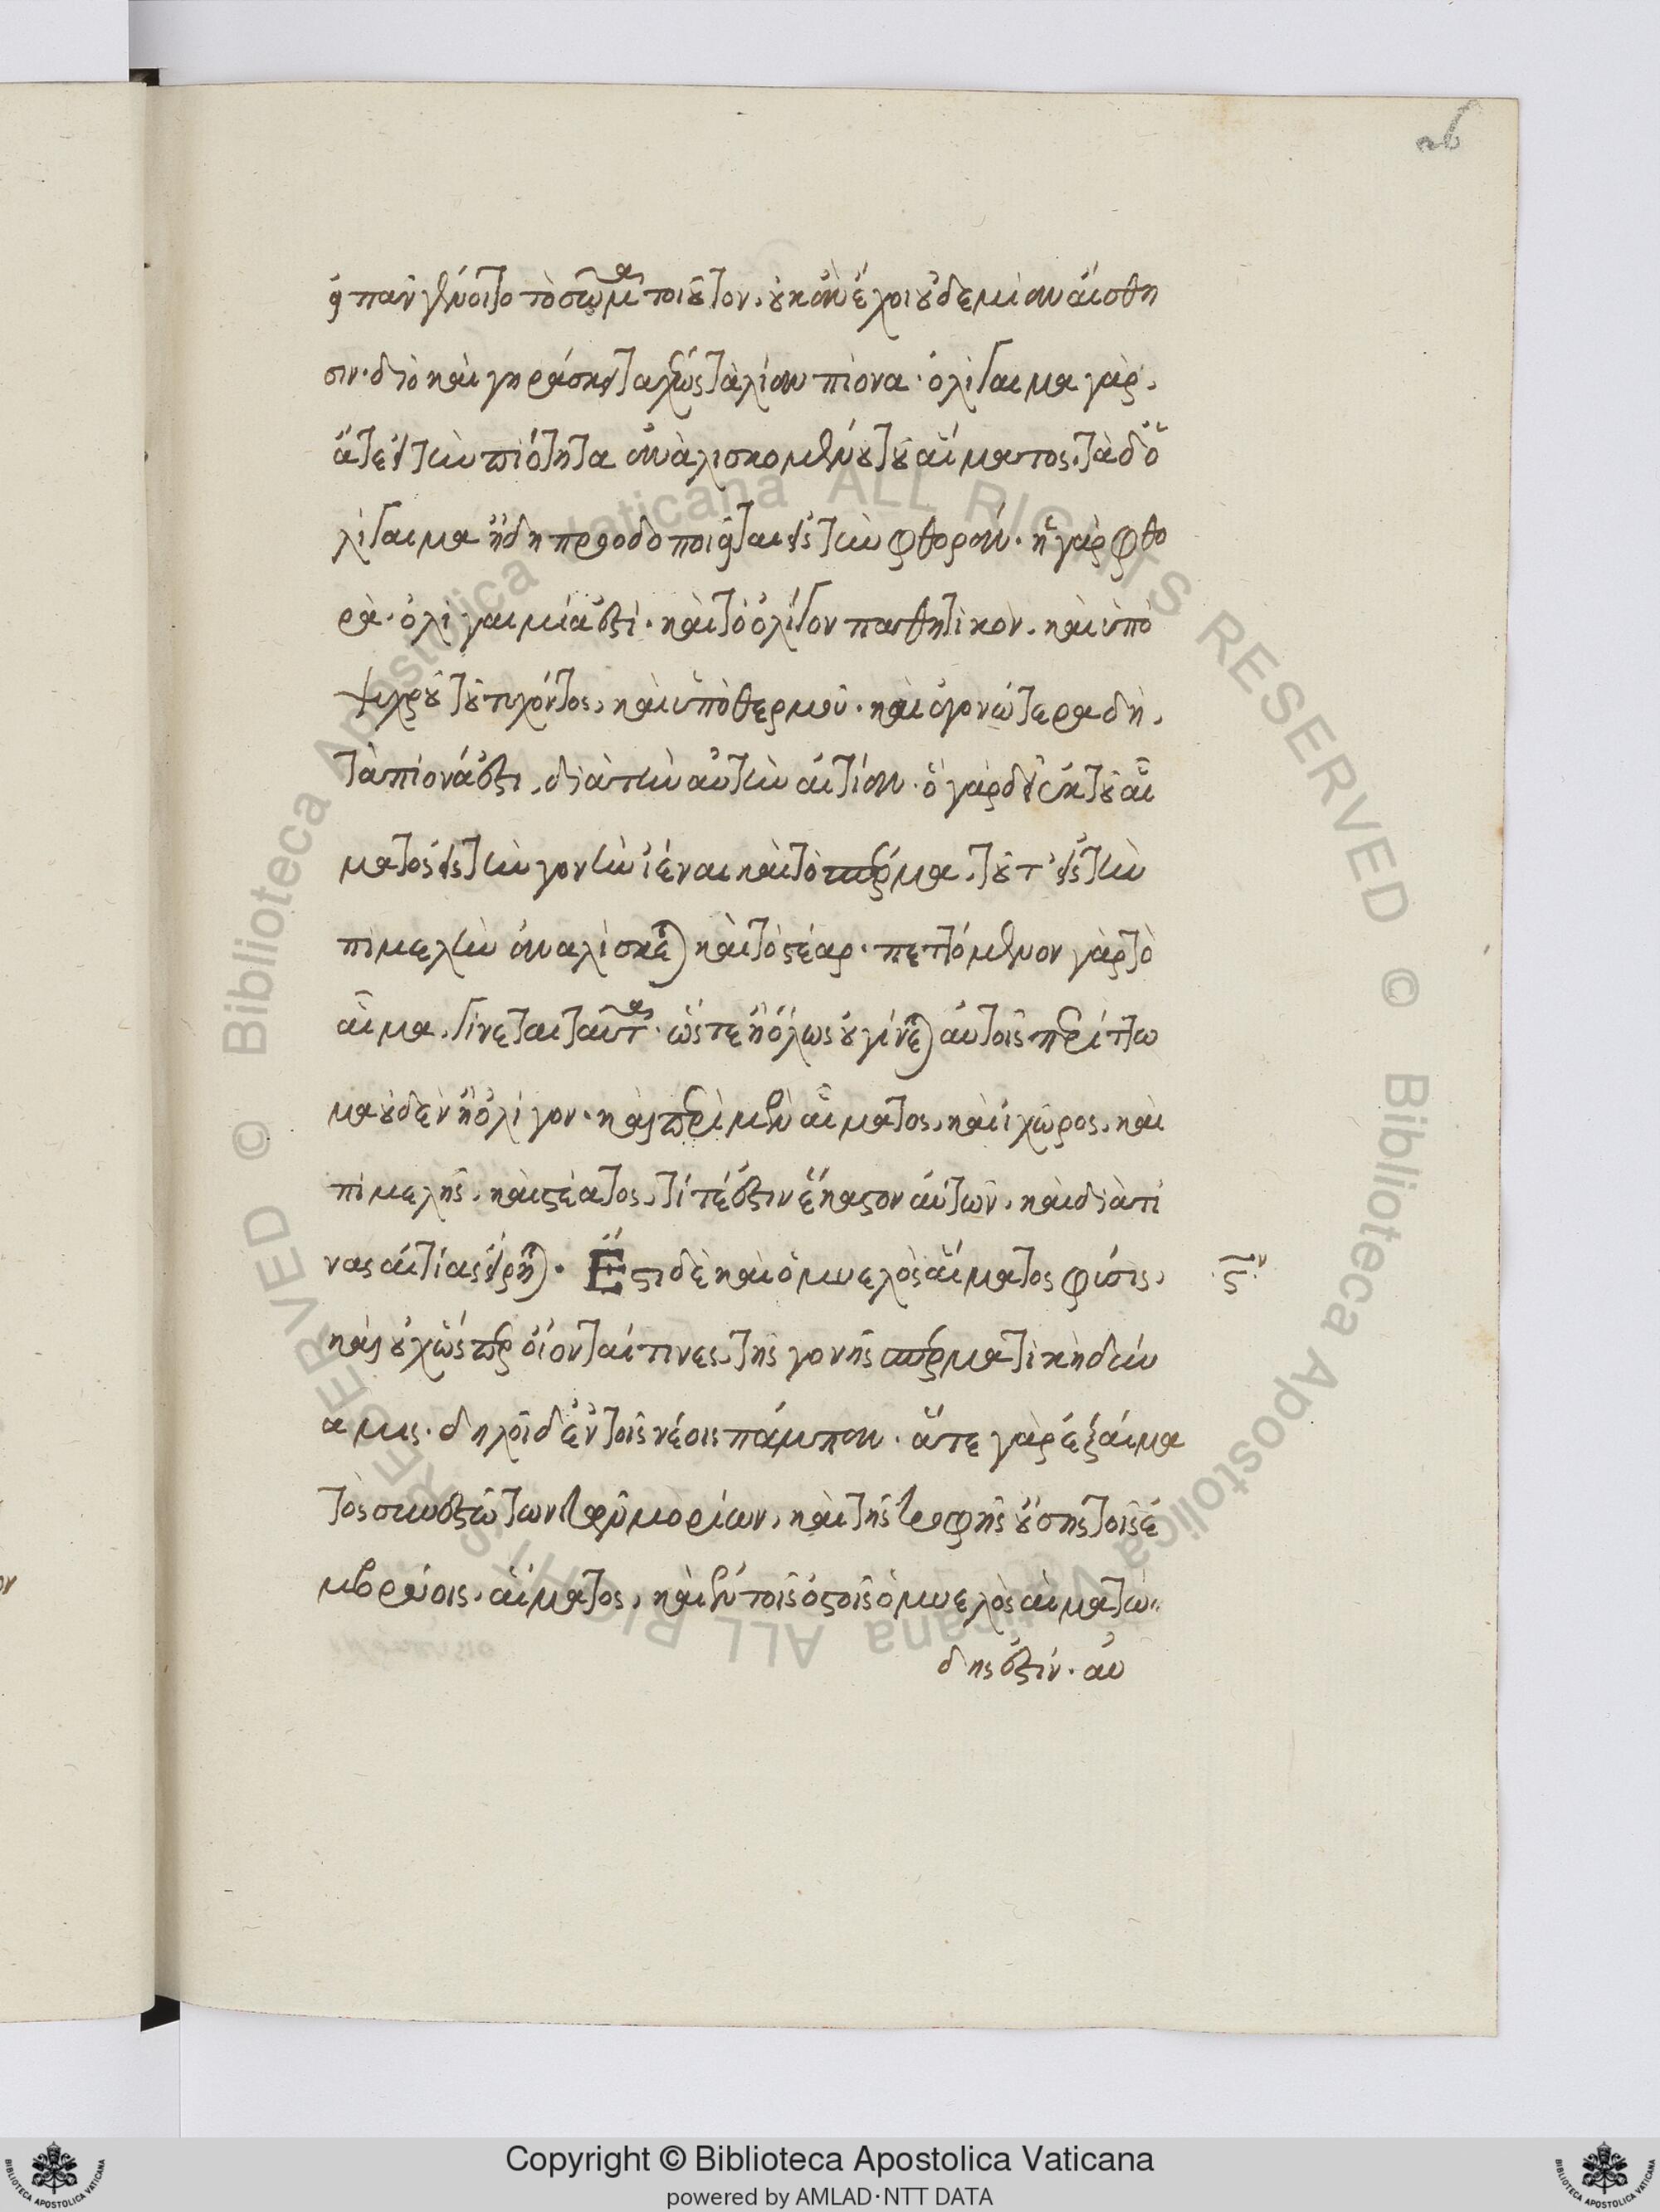 26
εἰ πᾶν γένοιτο τὸ σῶμα τοιοῦτον, οὐκ ἂν ἔχοι οὐδεμίαν αἴσθη
σιν· διὸ καὶ γηράσκει ταχέως τὰ λίαν πίονα· ὀλίγαιμα γάρ,
ἅτε εἰς τὴν πιότητα ἀναλισκομένου τοῦ αἵματος, τὰ δ' ὀ
λίγαιμα ἤδη προοδοποιεῖται εἰς τὴν φθοράν· ἡ γὰρ φθο
ρὰ· ὀλιγαιμία ἐστί· καὶ τὸ ὀλίγον παθητικὸν, καὶ ὑπὸ
ψυχροῦ τοῦ τυχόντος, καὶ ὑπὸ θερμοῦ· καὶ ἀγονώτερα δὴ,
τὰ πίονά ἐστι, διὰ τὴν αὐτὴν αἰτίαν· ὃ γὰρ δεῖ ἐκ τοῦ αἵ
ματος εἰς τὴν γονὴν ἰέναι καὶ τὸ σπέρμα, τοῦτ' εἰς τὴν
πιμελὴν ἀναλίσκεται καὶ τὸ στέαρ· πεττόμενον γὰρ τὸ
αἷμα, γίνεται ταῦτα· ὥστε ἢ ὅλως οὐ γίνεται αὐτοῖς περίττω
μα οὐδὲν ἢ ὀλίγον· καὶ περὶ μὲν αἵματος, καὶ ἰχῶρος, καὶ
πιμελῆς, καὶ στέατος, τί τέ ἐστιν ἕκαστον αὐτῶν, καὶ διὰ τί
νας αἰτίας εἴρηται· Ἔστι δὲ καὶ ὁ μυελὸς αἵματος φύσις,
ςον
καὶ οὐχ ὥσπερ οἴονταί τινες, τῆς γονῆς σπερματικὴ δύν
αμις· δηλοῖ δ' ἐν τοῖς νέοις πάμπαν· ἅτε γὰρ ἐξ αἵμα
τος συνεστώτων τῶν μορίων, καὶ τῆς τροφῆς οὔσης τοῖς ἐ
μβρύοις, αἵματος, καὶ ἐν τοῖς ὀστοῖς ὁ μυελὸς αἱματώ
δης ἐστίν· αὐ
Copyright © Biblioteca Apostolica Vaticana
powered by AMLAD·NTT DATA